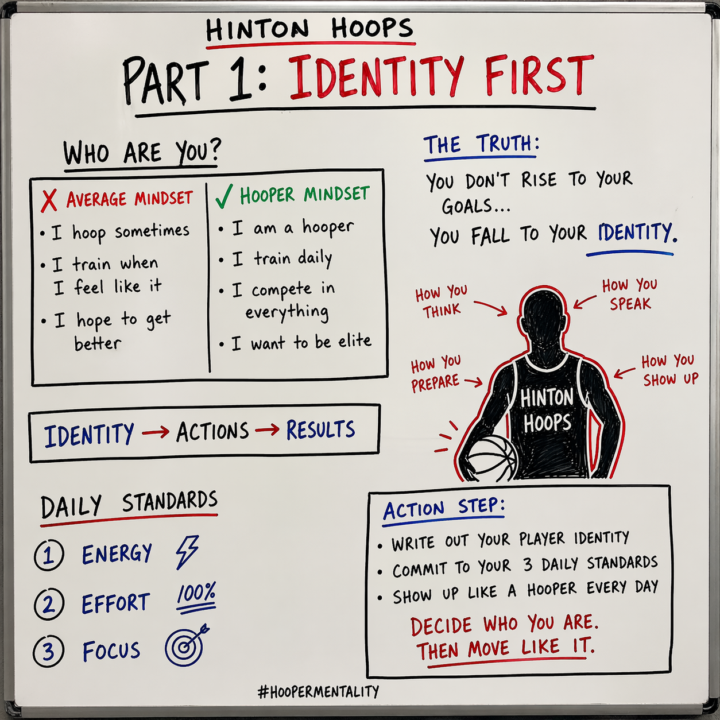 HINTON HOOPS
PART 1: IDENTITY FIRST
WHO ARE YOU?
✗ AVERAGE MINDSET
• I hoop sometimes
• I train when
I feel like it
• I hope to get
better
✓ HOOPER MINDSET
• I am a hooper
• I train daily
• I compete in
everything
• I want to be elite
THE TRUTH:
YOU DON'T RISE TO YOUR
GOALS...
YOU FALL TO YOUR IDENTITY.
HOW YOU
THINK
HOW YOU
SPEAK
HOW YOU
PREPARE
HOW YOU
SHOW UP
HINTON
HOOPS
IDENTITY → ACTIONS → RESULTS
DAILY STANDARDS
1 ENERGY
2 EFFORT 100%
3 FOCUS
ACTION STEP:
• WRITE OUT YOUR PLAYER IDENTITY
• COMMIT TO YOUR 3 DAILY STANDARDS
• SHOW UP LIKE A HOOPER EVERY DAY
DECIDE WHO YOU ARE.
THEN MOVE LIKE IT.
#HOOPERMENTALITY